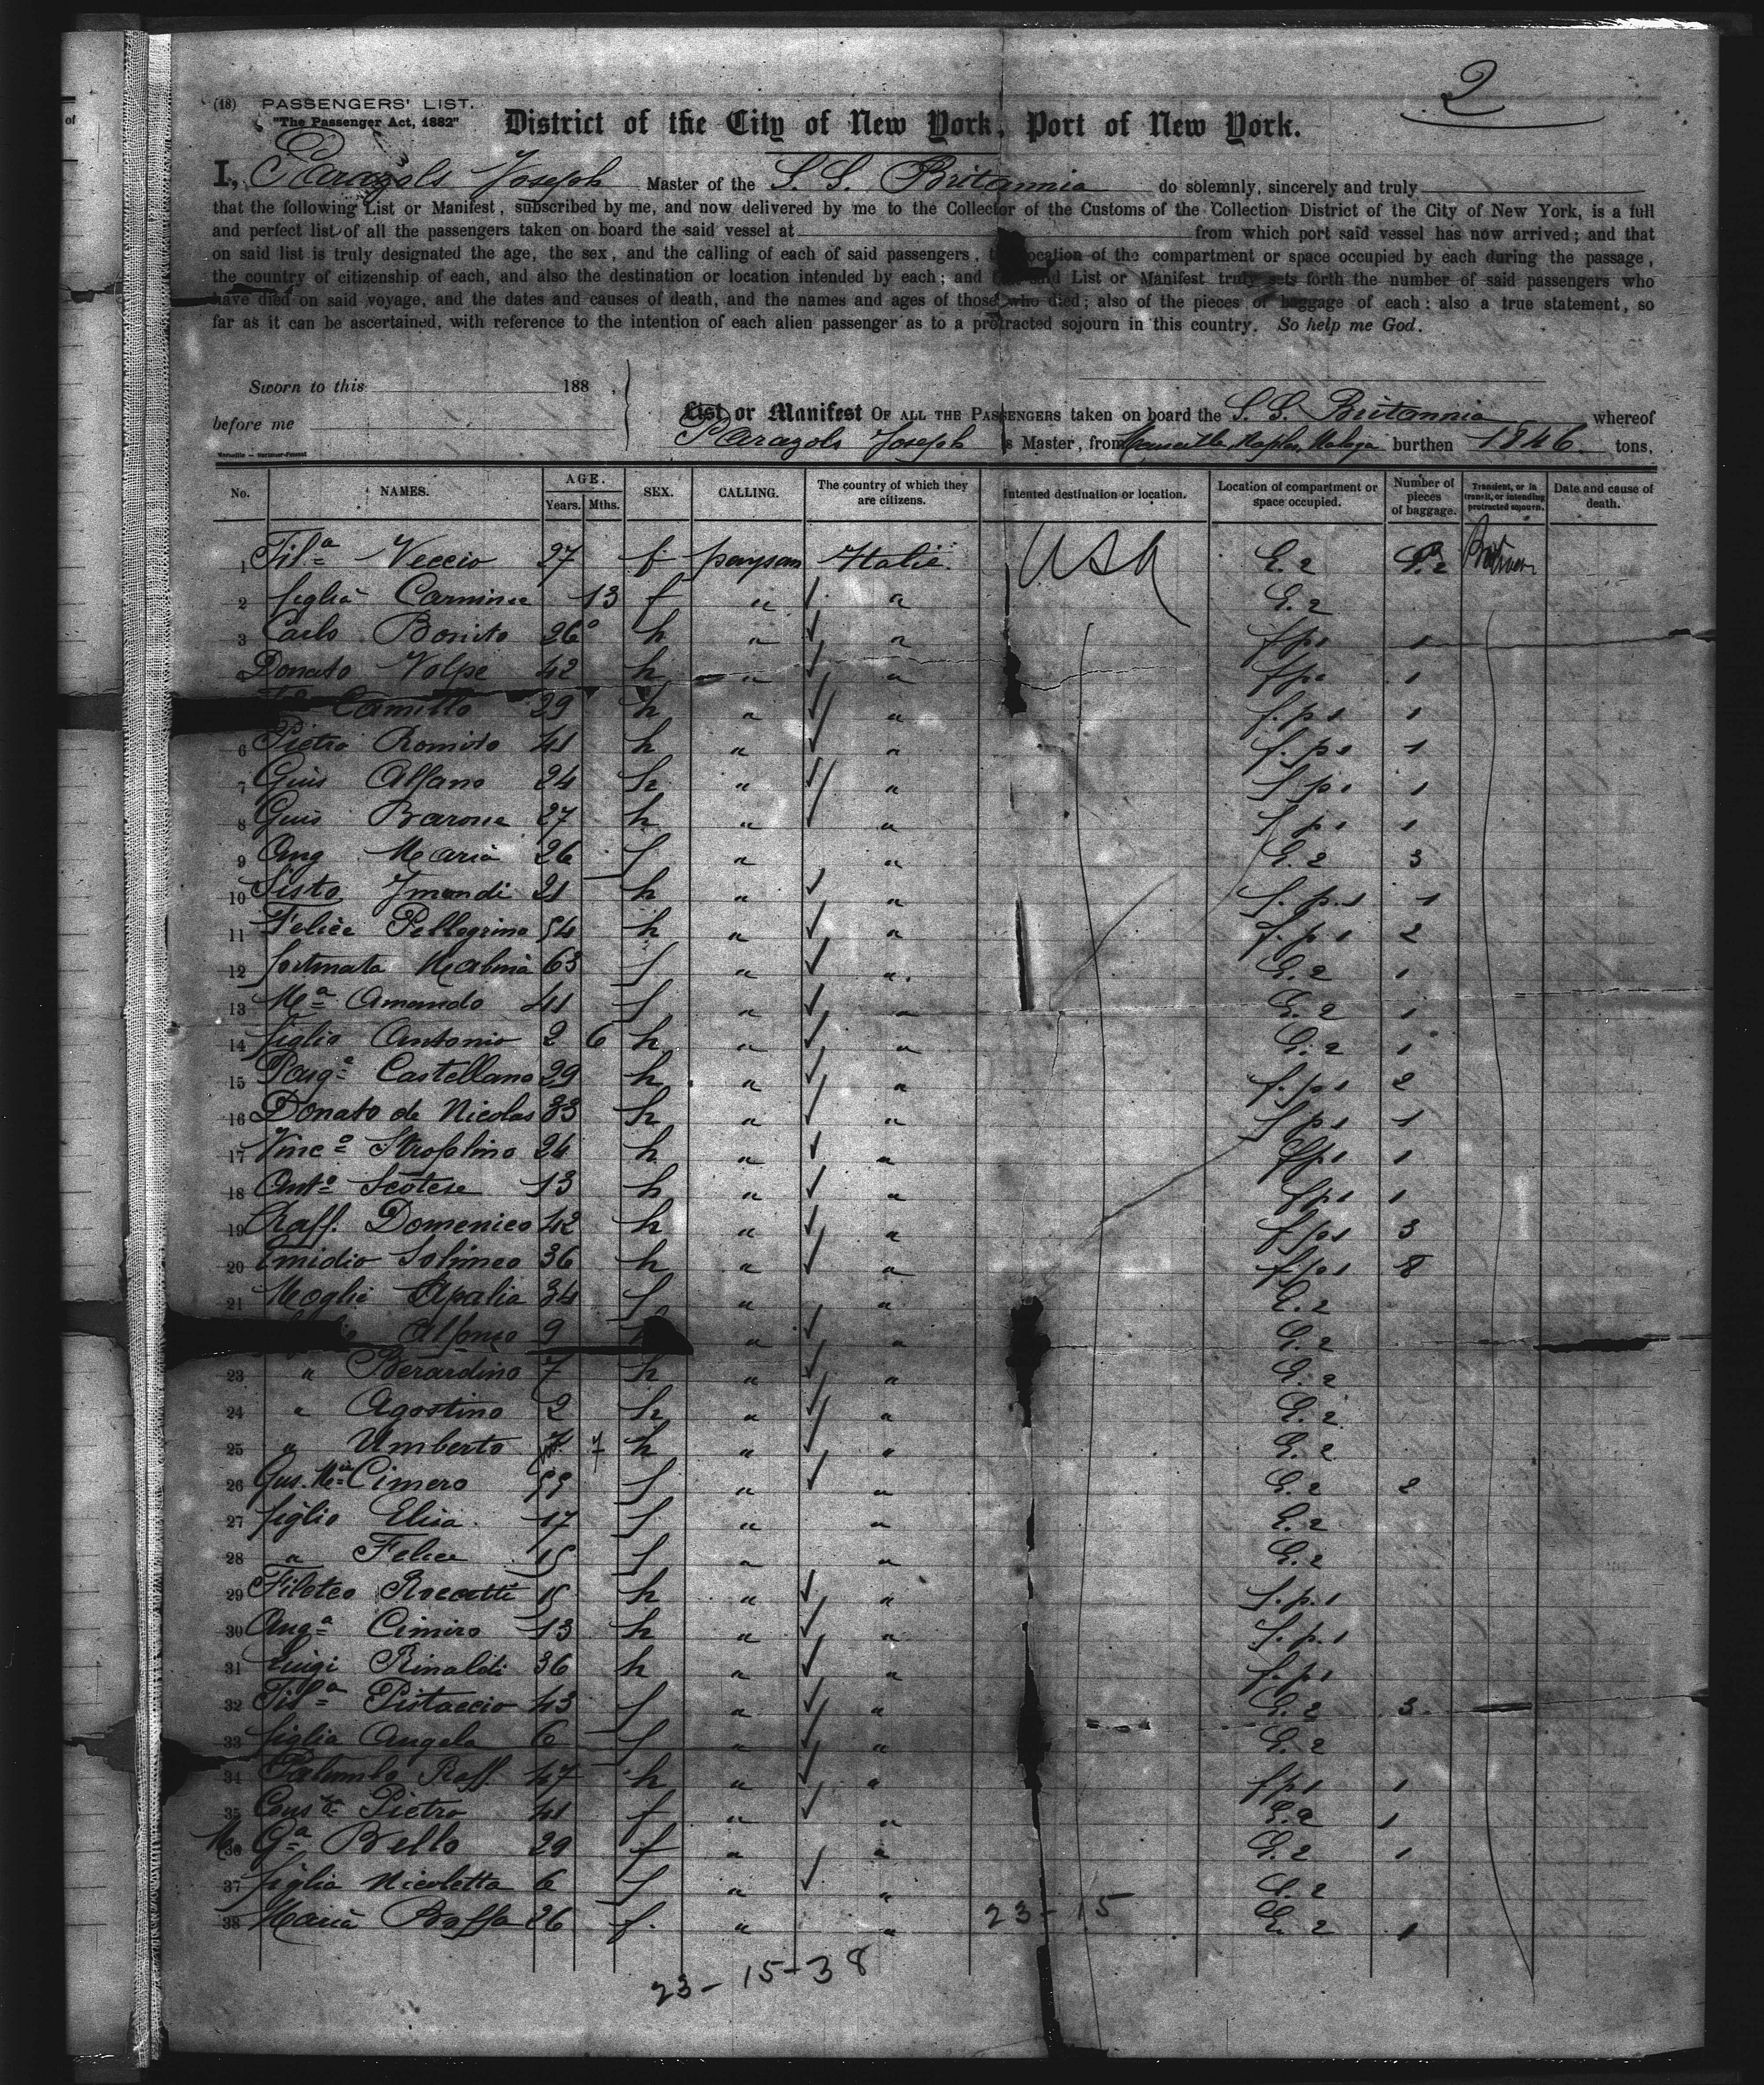 2
(18) PASSENGERS' LIST.
"The Passenger Act, 1882"
District of the City of New York, Port of New York.
I, Parazols Joseph Master of the S. S. Britannia do solemnly, sincerely and truly
that the following List or Manifest, subscribed by me, and now delivered by me to the Collector of the Customs of the Collection District of the City of New York, is a full
and perfect list of all the passengers taken on board the said vessel at from which port said vessel has now arrived; and that
on said list is truly designated the age, the sex, and the calling of each of said passengers, location of the compartment or space occupied by each during the passage,
the country of citizenship of each, and also the destination or location intended by each; and said List or Manifest truly sets forth the number of said passengers who
have died on said voyage, and the dates and causes of death, and the names and ages of those who died; also of the pieces of baggage of each: also a true statement, so
far as it can be ascertained, with reference to the intention of each alien passenger as to a protracted sojourn in this country. So help me God.
Sworn to this 188
before me
List or Manifest OF ALL THE PASSENGERS taken on board the S. S. Britannia whereof
Parazols Joseph is Master, from Marseille, Naples, Malaga burthen 1846 tons,
No. NAMES. AGE. Years. Mths. SEX. CALLING. The country of which they are citizens. Intented destination or location. Location of compartment or space occupied. Number of pieces of baggage. Transient, or in transit, or intending protracted sojourn. Date and cause of death.
1 Fil.a Veccio 27 f paysan Italie USA E. 2 2
2 figlia Carmine 13 f " " E. 2
3 Carlo Bonito 26 h " " f p 1 1
Donato Volpe 42 h " " f p 1 1
Camillo 29 h " " f. p 1 1
6 Pietro Romito 41 h " " f. p 1 1
7 Gius Alfano 24 h " " f p 1 1
8 Gius Barone 27 h " " f p 1 1
9 Ang Maria 26 f " " E. 2 3
10 Sisto Imondi 21 h " " f. p. 1 1
11 Felice Pellegrino 54 h " " f. p 1 2
12 fortunata 63 f " " E. 2 1
13 M.a Amando 41 f " " E. 2 1
14 figlio Antonio 2 6 h " " E. 2 1
15 Pasq.e Castellano 29 h " " f. p 1 2
16 Donato de Nicolas 33 h " " f p 1 1
17 Vinc.o Strofolino 24 h " " f p 1 1
18 Ant.o Scotese 13 h " " f p 1 1
19 Raff. Domenico 42 h " " f p 1 3
20 Emidio Solimeo 36 h " " f p 1 8
21 Moglie Apalia 34 f " " E. 2
Alfonso 9 " " E. 2
23 " Berardino 7 h " " E. 2
24 " Agostino 2 h " " E. 2
25 " Umberto 7 h " " E. 2
26 Gus. M.a Cimero 55 f " " E. 2 2
27 figlio Elisa 17 f " " E. 2
28 " Felice 15 f " " E. 2
29 Filoteo Roccatti 15 h " " f. p. 1
30 Ang.a Cimiro 13 h " " f. p. 1
31 Luigi Rinaldi 36 h " " f. p 1
32 Fil.a Pistaccio 43 f " " E. 2 3
33 figlia Angela 6 f " " E. 2
34 Palumbo Raff. 47 h " " f p 1 1
35 Pietro 41 f " " E. 2 1
36 G.a Bello 29 f " " E. 2 1
37 figlia Nicoletta 6 f " " E. 2
38 Maria Boffa 26 f. " " E. 2 1
23-15
23-15-38